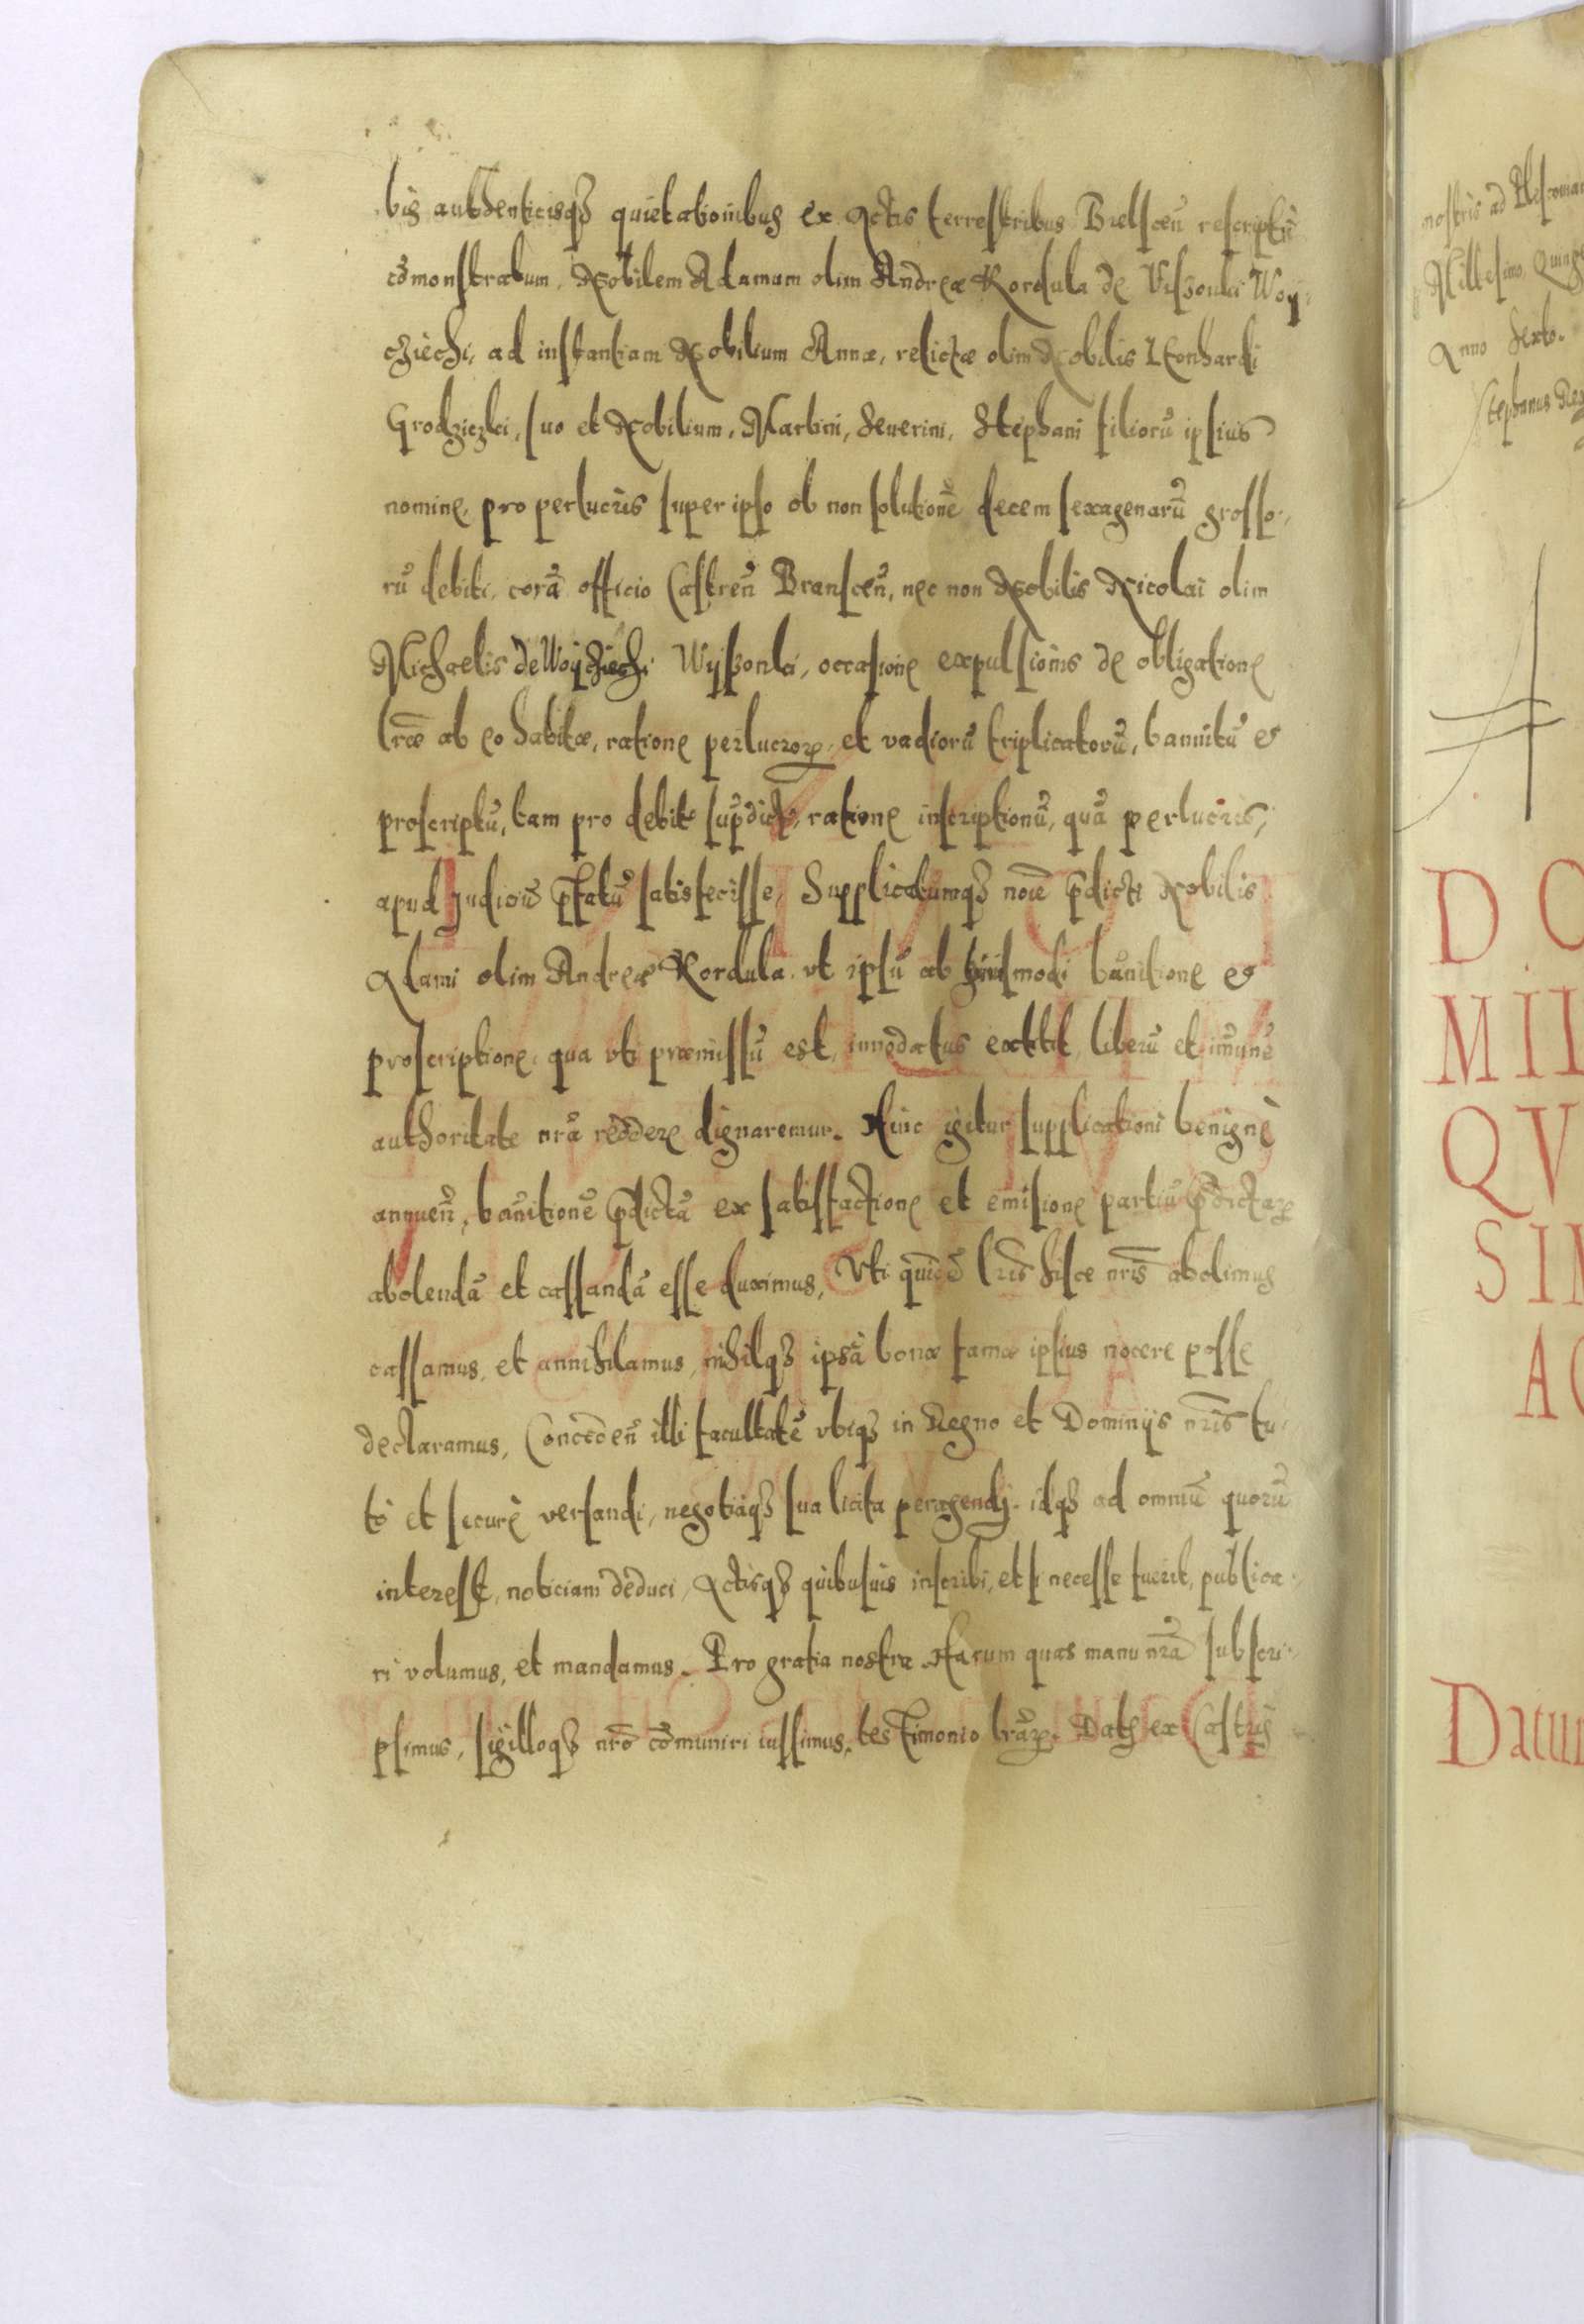 bis authenticisq₃ quietationibus ex Actis terrestribus Bielsceñ rescriptũ
cõmonstratum, Nobilem Adamum olim Andreæ Kordula de Viszonki Woy-
cziechi, ad instantiam Nobilium Annæ, relictæ olim Nobilis Leonhardi
Grodziczki, suo et Nobilium, Martini, Seuerini, Stephani filiorũ ipsius
nomine, pro perlucris super ipso ob non solutionẽ decem sexagenarũ grosso-
rũ debiti, corã officio Castreñ Bransceñ, nec non Nobilis Nicolai olim
Michaelis de Woycziechi Wyszonki, occasione expulsionis de obligatione
lrãe ab eo habitæ, ratione perlucroꝝ, et vadiorũ triplicatorũ, bannitũ et
proscriptũ, tam pro debito sup̃dicto, ratione inscriptionũ, quã perlucris,
apud Judiciũ p̃fatũ satisfecisse, Supplicatumq₃ noĩe p̃dicti Nobilis
Adami olim Andreæ Kordula, vt ipsũ ab huiusmodi bãnitione et
proscriptione, qua vti præmissũ est, innodatus extitit, liberũ et imũnẽ
authoritate nrã reddere dignaremur. Huic igitur supplicationi benignè
annueñ, bãnitionẽ p̃dictã ex satisfactione et emisione partiũ p̃dictaꝝ
abolendã et cassandã esse duximus, Vti quidẽ lrĩs hisce nrĩs abolimus
cassamus, et annihilamus, nihilq₃ ipsã bonæ famæ ipsius nocere posse
declaramus, Concedeñ illi facultatẽ vbiq₃ in Regno et Dominijs nrĩs tu-
tò et securè versandi, negotiaq₃ sua licita peragendj. idq₃ ad omniũ quorũ
interest, noticiam deduci, Actisq₃ quibusuis inscribi, et si necesse fuerit, publica-
ri volumus, et mandamus. Pro gratia nostra. Harum quas manu nrã subscri-
psimus, sigilloq₃ nrõ cõmuniri iussimus, testimonio lrãꝝ. Datꝫ ex Castris
nostris ad
Millesimo
Anno Sexto.
Stephanus
D
MIL
QV
SIM
AC
Datum